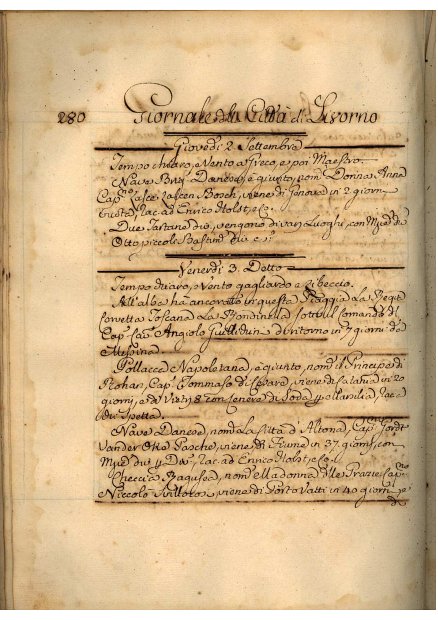 280 Giornale della Città di Livorno
Giovedi 2. Settembre
Tempo chiaro, e Vento a Greco, e poi Maestro.
Nave Danese, è giunto, nom. Donna Anna
Cap. Bosch, viene di Genova in 2 giorni
Rac. ad Enrico Holst, e Co.
Due Tartane div. vengono di varj Luoghi, con Mer. div.
Otto piccoli Bastim. div. e
Venerdi 3. Detto
Tempo chiaro, e vento gagliardo e Libeccio.
All'alba hà ancorato in questa Spiaggia La Regia
Corvetta Toscana La Rondinella sotto il Comando del
Cap. Cav. Angiolo di ritorno in 7 giorni da
Messina.
Pollacca Napoletana, è giunto, nom. il Principe di
Rohan, Cap. Tommaso di Cesare, viene di Catania in 20
giorni, e di con Cenere di Soda Marsilia, Rac. a
di Spetta.
Nave Danese, nom. la Città d'Altona, Cap.
Vander Pasche, viene di Fiume in 37. giorni, con
Mer. div. Div. Rac. ad Enrico Holst, e Co.
Checcia Ragusea, nom. la Madonna delle Grazie, Cap.
Niccolò viene di Porto Vatti in 40 giorni